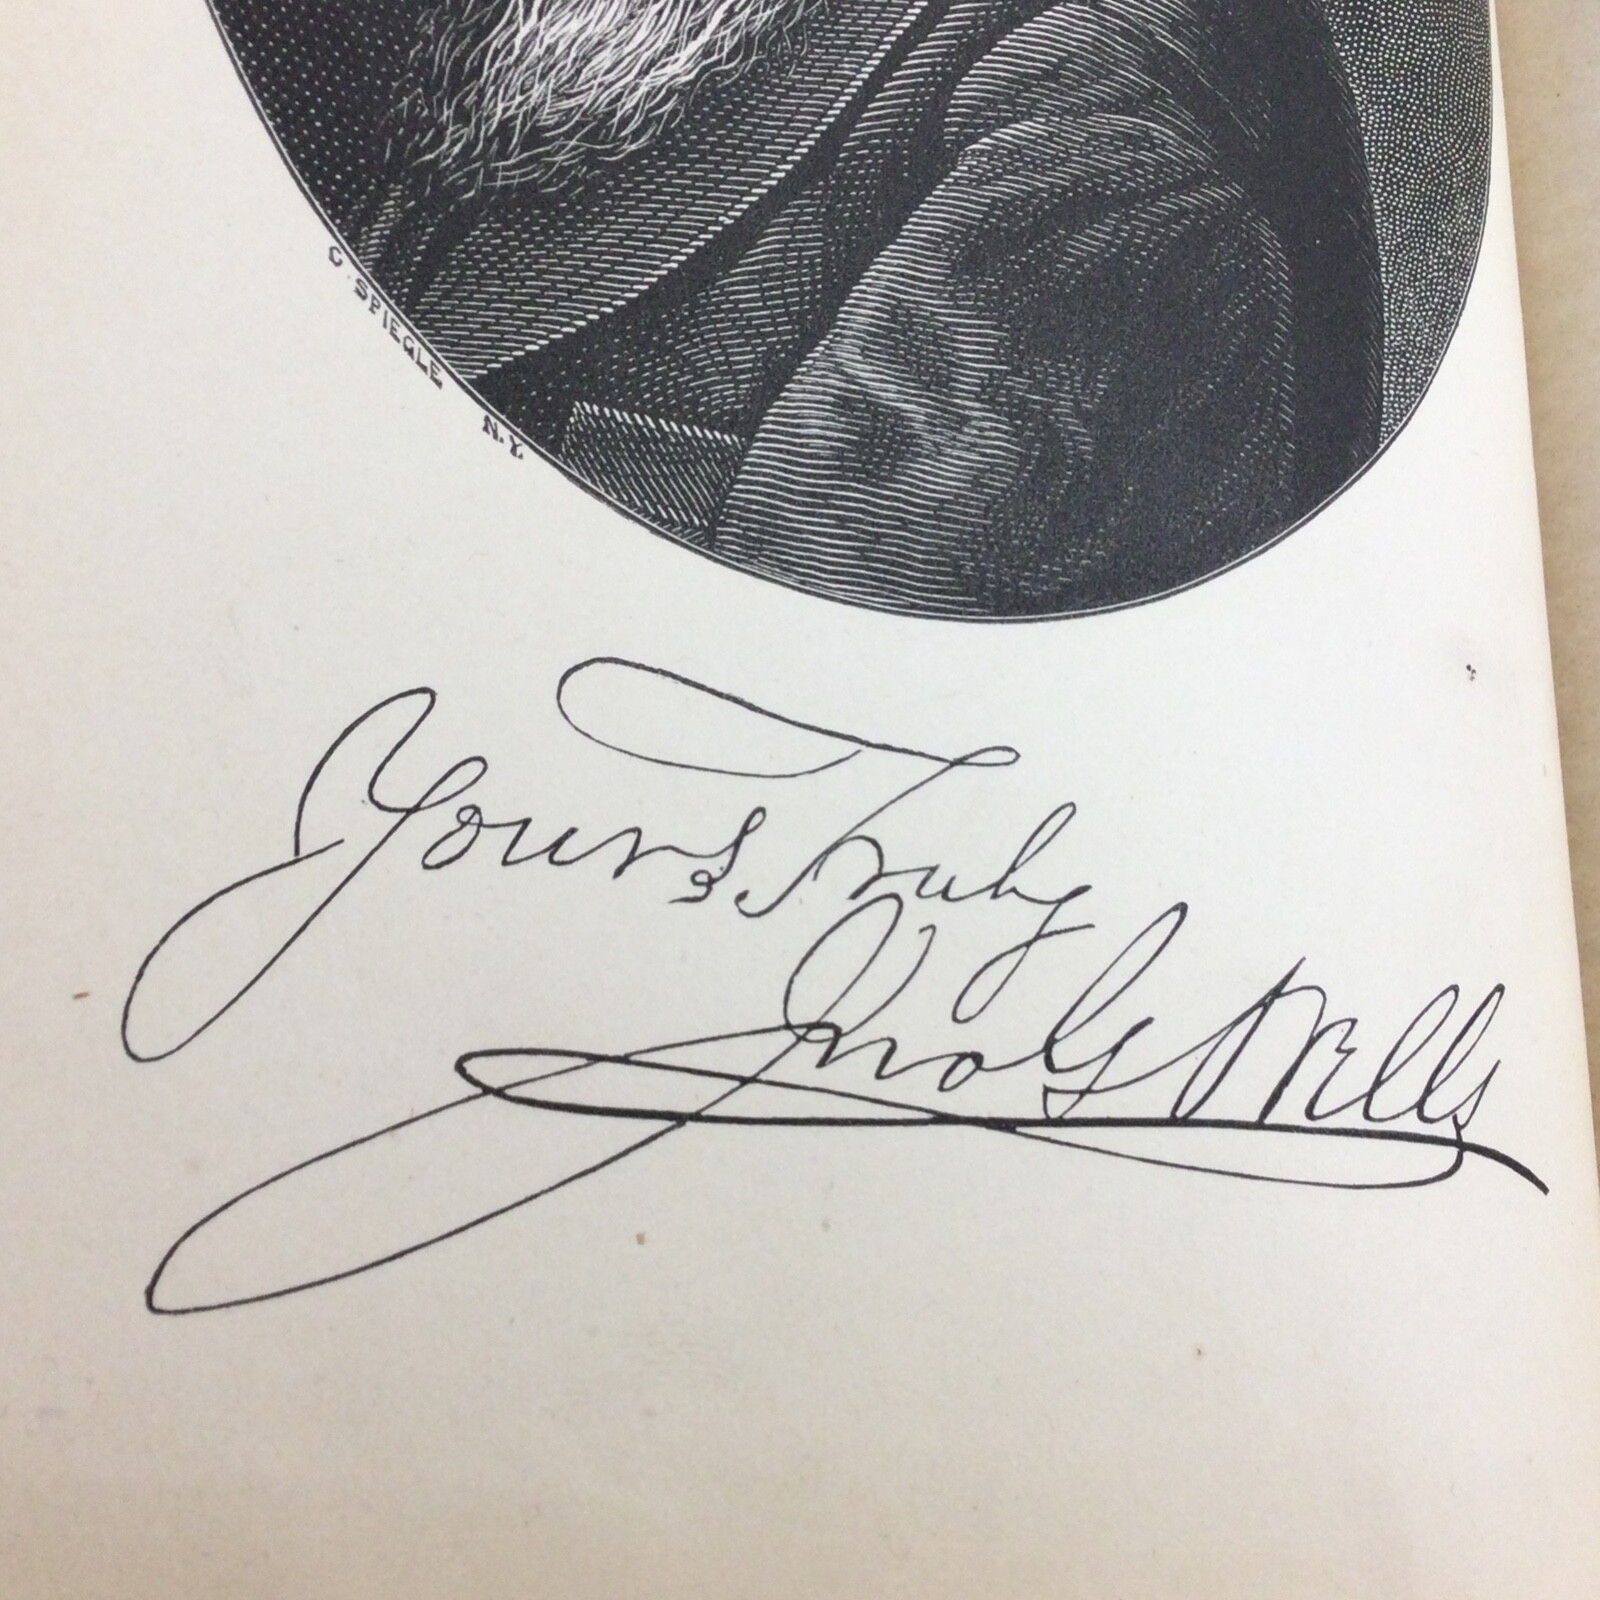 C. SPIEGLE N.Y.
Yours Truly
Jno G Wells